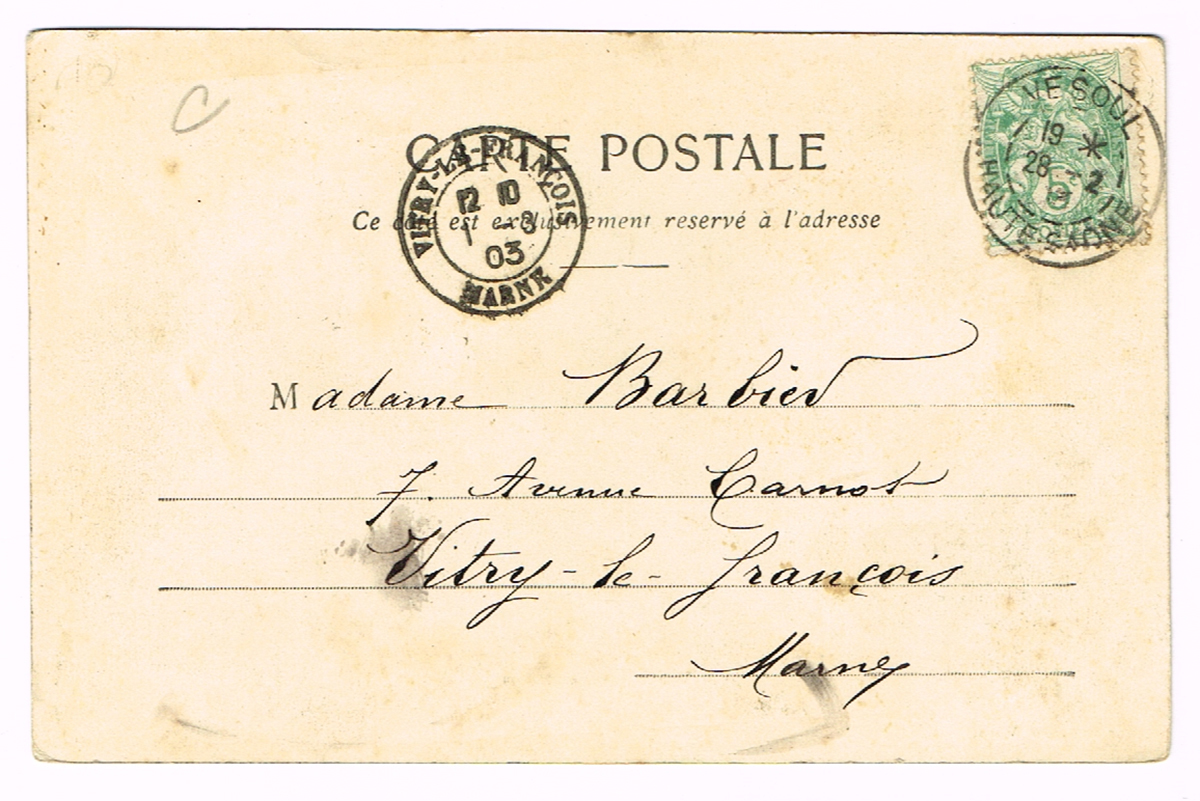 C
CARTE POSTALE
Ce côté est exclusivement reservé à l'adresse
VITRY-LE-FRANÇOIS
12 10
1 -3
03
MARNE
VESOUL
19 *
28 - 2
HAUTE-SAÔNE
5
Madame Barbier
7. Avenue Carnot
Vitry-le-François
Marne